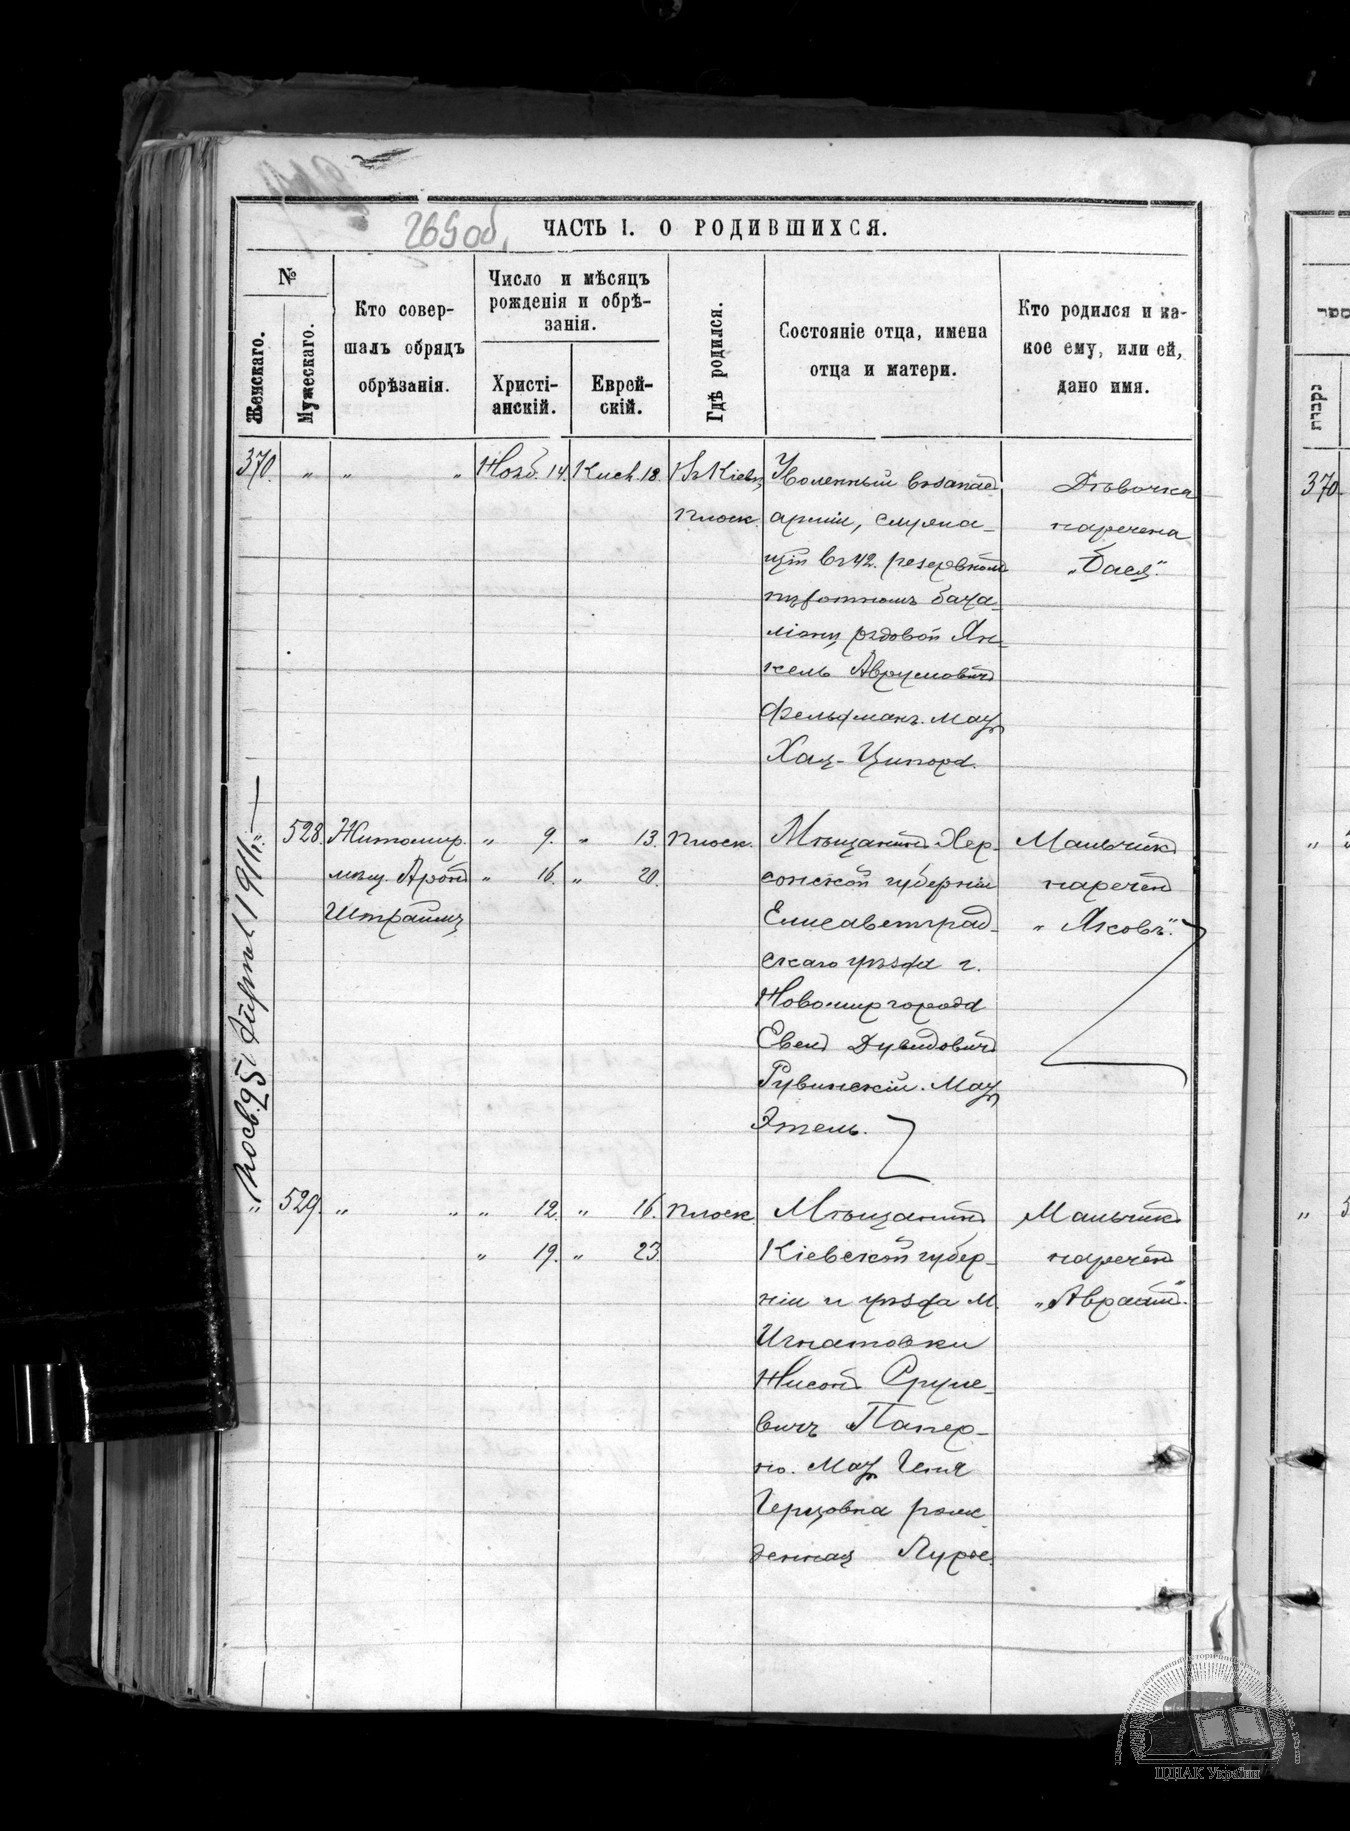 265 об.
ЧАСТЬ I. О РОДИВШИХСЯ.
№
Женскаго.
Мужескаго.
Кто совер-
шалъ обрядъ
обрѣзанія.
Число и мѣсяцъ
рожденія и обрѣ-
занія.
Христі-
анскій.
Еврей-
скій.
Гдѣ родился.
Состояніе отца, имена
отца и матери.
Кто родился и ка-
кое ему, или ей,
дано имя.
370. " " " Нояб. 14. Кисл. 18. Въ Кіевѣ
Плоск.
Уволенный въ запасъ
арміи, служа-
щій въ 42. резервномъ
пѣхотномъ бата-
ліону рядовой Ян-
кель Аврумовичъ
Фельдманъ. Мать
Хая-Ципора.
Дѣвочка
наречена
„Бася."
528. Житомир. " 9. " 13. Плоск.
мѣщ. Аронъ " 16. " 20.
Штраймъ
Мѣщанинъ Хер-
сонской губерніи
Елисаветград-
скаго уѣзда г.
Новомиргорода
Евель Дувидовичъ
Рувинскій. Мать
Этель.
Мальчикъ
нареченъ
„Яковъ."
" 529. " " " 12. " 16. Плоск.
" 19. " 23.
Мѣщанинъ
Кіевской губер-
ніи и уѣзда м.
Игнатовки
Нисонъ Сруле-
вичъ Папер-
но. Мать Геня
Герцовна рож-
денная Лурье.
Мальчикъ
нареченъ
„Авраамъ."
370
ЦДІАК України